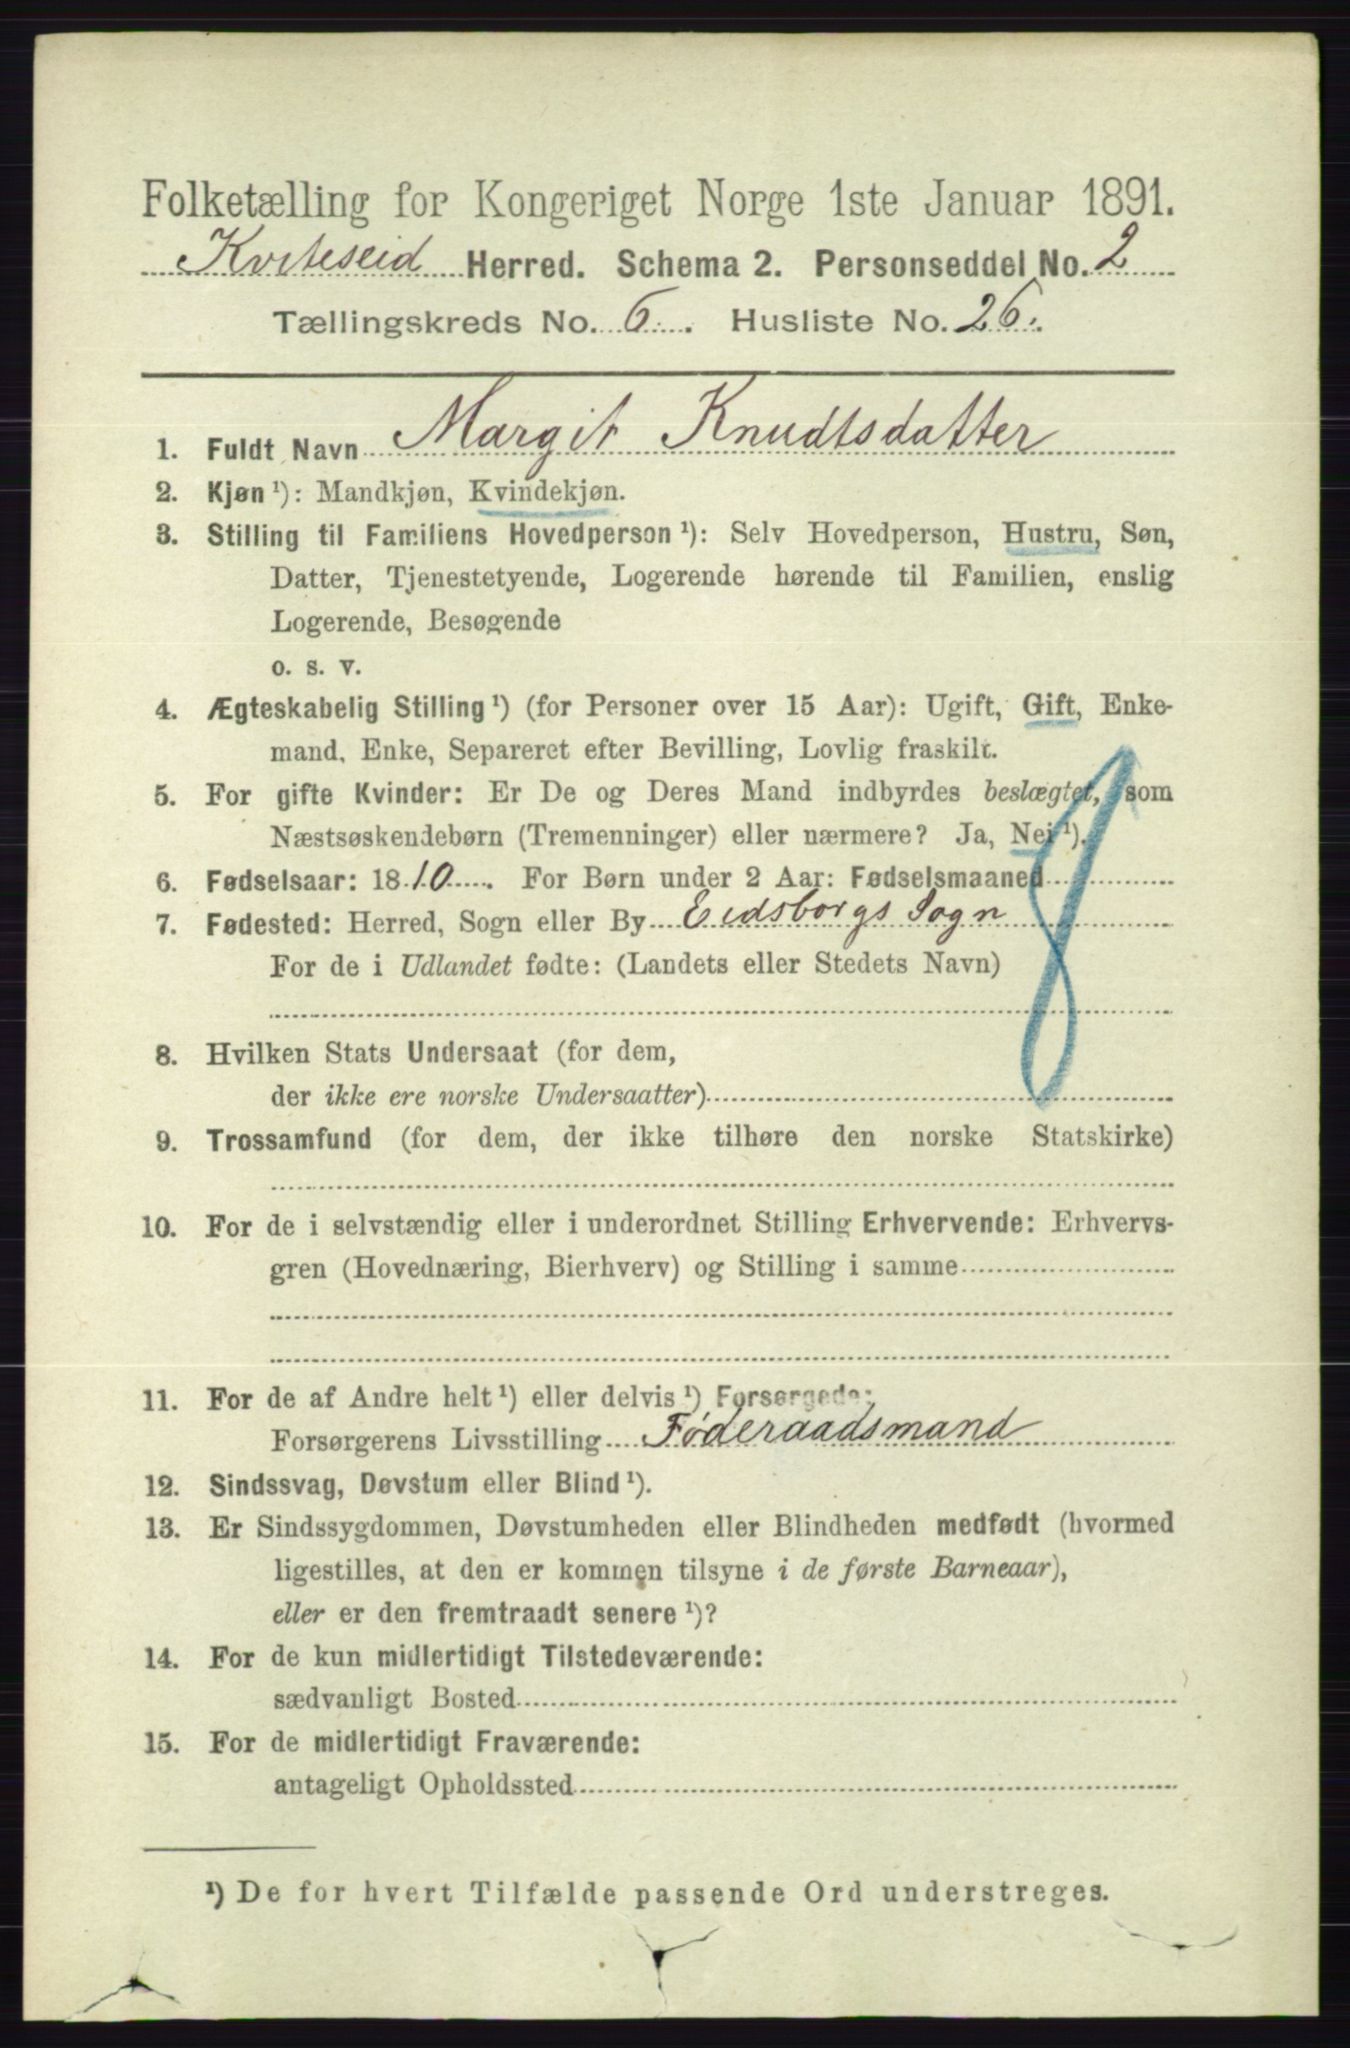 Folketælling for Kongeriget Norge 1ste Januar 1891.
Kviteseid Herred. Schema 2. Personseddel No. 2
Tællingskreds No. 6. Husliste No. 26.
1. Fuldt Navn Margit Knudtsdatter
2. Kjøn ¹): Mandkjøn, Kvindekjøn.
3. Stilling til Familiens Hovedperson ¹): Selv Hovedperson, Hustru, Søn,
Datter, Tjenestetyende, Logerende hørende til Familien, enslig
Logerende, Besøgende
o. s. v.
4. Ægteskabelig Stilling ¹) (for Personer over 15 Aar): Ugift, Gift, Enke-
mand, Enke, Separeret efter Bevilling, Lovlig fraskilt.
5. For gifte Kvinder: Er De og Deres Mand indbyrdes beslægtet, som
Næstsøskendebørn (Tremenninger) eller nærmere? Ja, Nei ¹).
6. Fødselsaar: 1810. For Børn under 2 Aar: Fødselsmaaned
7. Fødested: Herred, Sogn eller By Eidsborgs Sogn
For de i Udlandet fødte: (Landets eller Stedets Navn)
8. Hvilken Stats Undersaat (for dem,
der ikke ere norske Undersaatter)
9. Trossamfund (for dem, der ikke tilhøre den norske Statskirke)
10. For de i selvstændig eller i underordnet Stilling Erhvervende: Erhvervs-
gren (Hovednæring, Bierhverv) og Stilling i samme
11. For de af Andre helt ¹) eller delvis ¹) Forsørgede:
Forsørgerens Livsstilling Føderaadsmand
12. Sindssvag, Døvstum eller Blind ¹).
13. Er Sindssygdommen, Døvstumheden eller Blindheden medfødt (hvormed
ligestilles, at den er kommen tilsyne i de første Barneaar),
eller er den fremtraadt senere ¹)?
14. For de kun midlertidigt Tilstedeværende:
sædvanligt Bosted
15. For de midlertidigt Fraværende:
antageligt Opholdssted
¹) De for hvert Tilfælde passende Ord understreges.